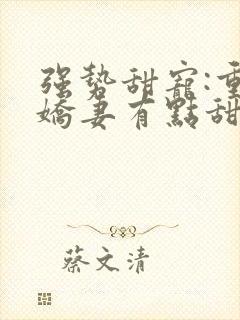 强勢甜寵:重
嬌妻有點甜
蔡文清